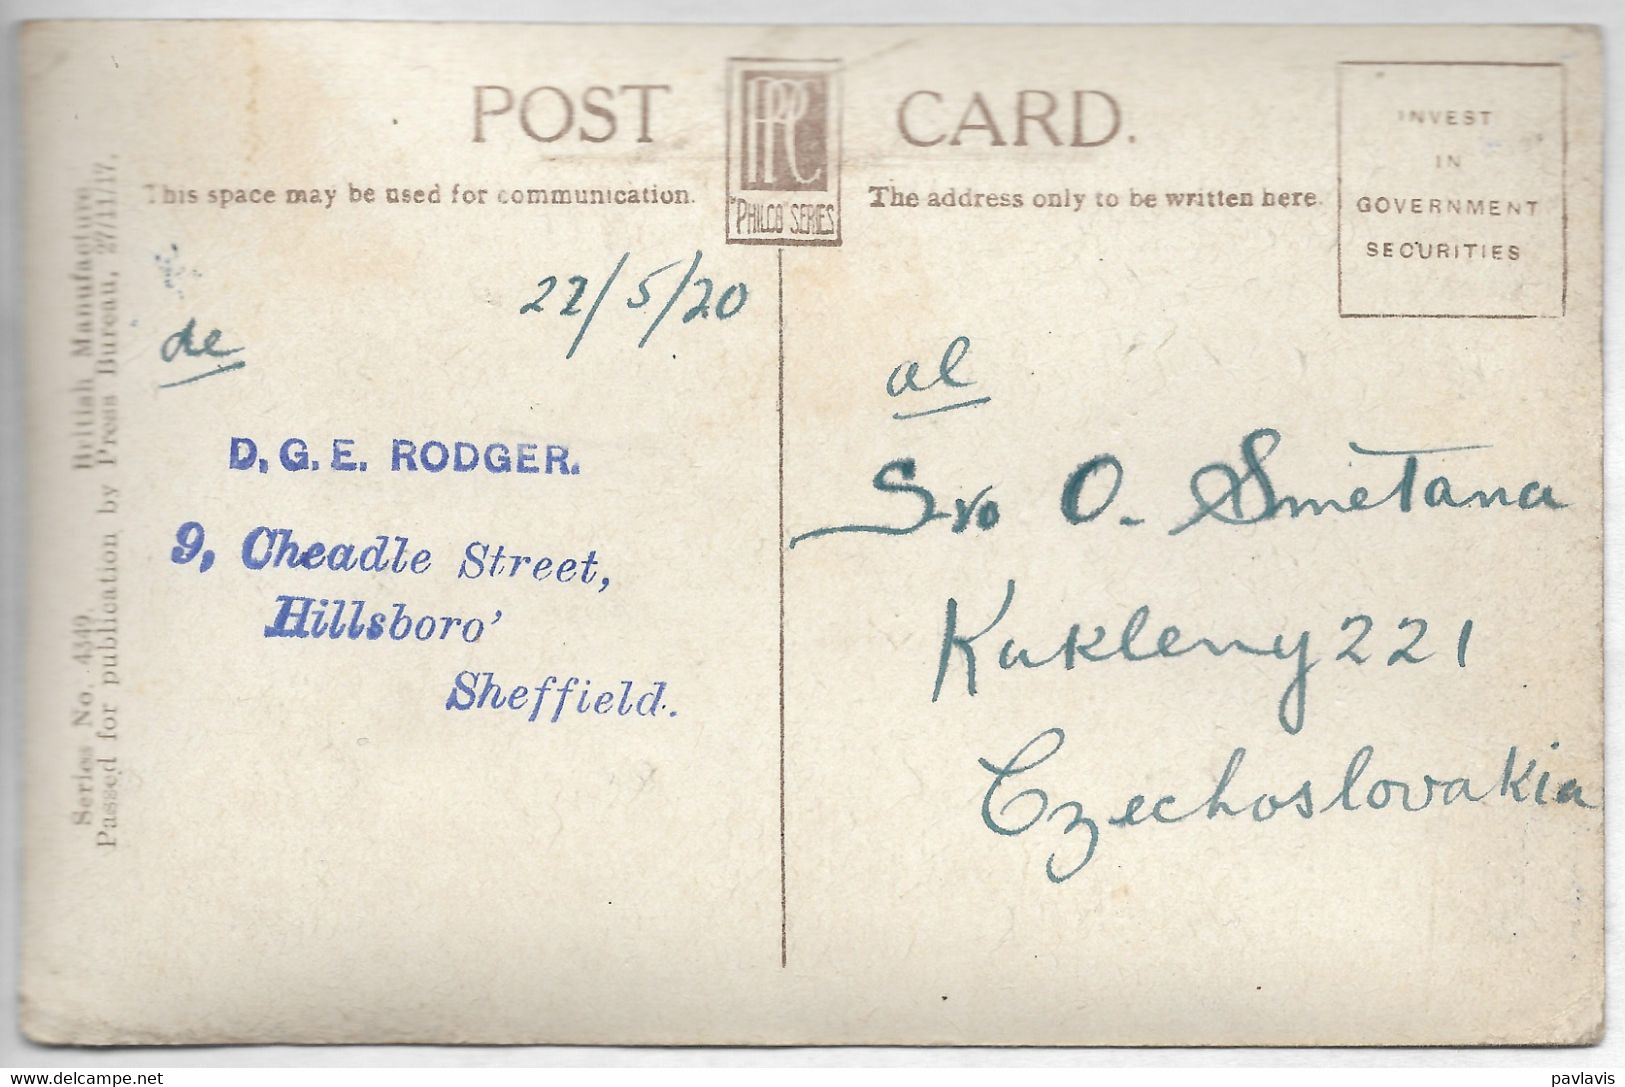 POST CARD.
This space may be used for communication.
The address only to be written here.
"PHILCO" SERIES
INVEST
IN
GOVERNMENT
SECURITIES
Series No. 4349. British Manufacture.
Passed for publication by Press Bureau, 27/11/17.
22/5/20
de
D. G. E. RODGER.
9, Cheadle Street,
Hillsboro'
Sheffield.
al
Sro O. Smetana
Kukleny 221
Czechoslovakia
www.delcampe.net
pavlavis